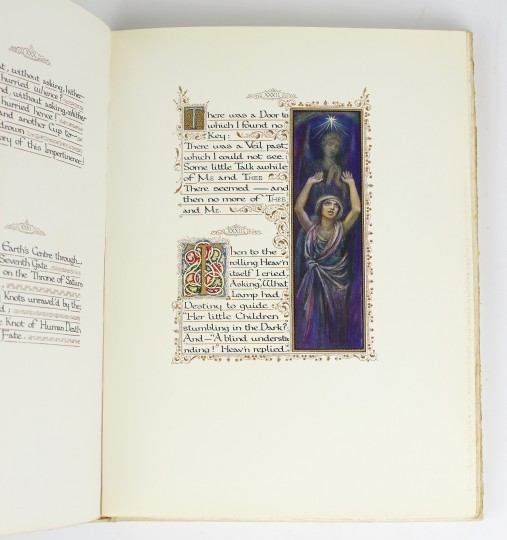 XXX
t, without asking, hither
hurried whence?
nd, without asking, whither
hurried hence!
And another Cup to
drown
ory of this Impertinence!
XXXI
Earth's Centre through
Seventh Gate
on the Throne of Saturn
Knots unravel'd by the
d;
e Knot of Human Death
Fate.
XXXII
There was a Door to
which I found no
Key:
There was a Veil past
which I could not see:
Some little Talk awhile
of ME and THEE
There seemed — and
then no more of THEE
and ME.
XXXIII
Then to the
rolling Heav'n
itself I cried,
Asking, "What
Lamp had
Destiny to guide
"Her little Children
stumbling in the Dark?"
And—"A blind understa
nding!" Heav'n replied.